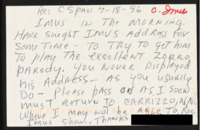 Re: CSPAN 7-15-96 O. Imus
IMUS IN THE MORNING.
Have sought IMUS Address for
Some time - TO TRY TO get him
TO play the excellent ZORRO
parody. You Never Displayed
his Address - As you usually
Do - Please pass on As I soon
must return to CARRIZO
where I may not be ABLE TO
Imus show. Thanks